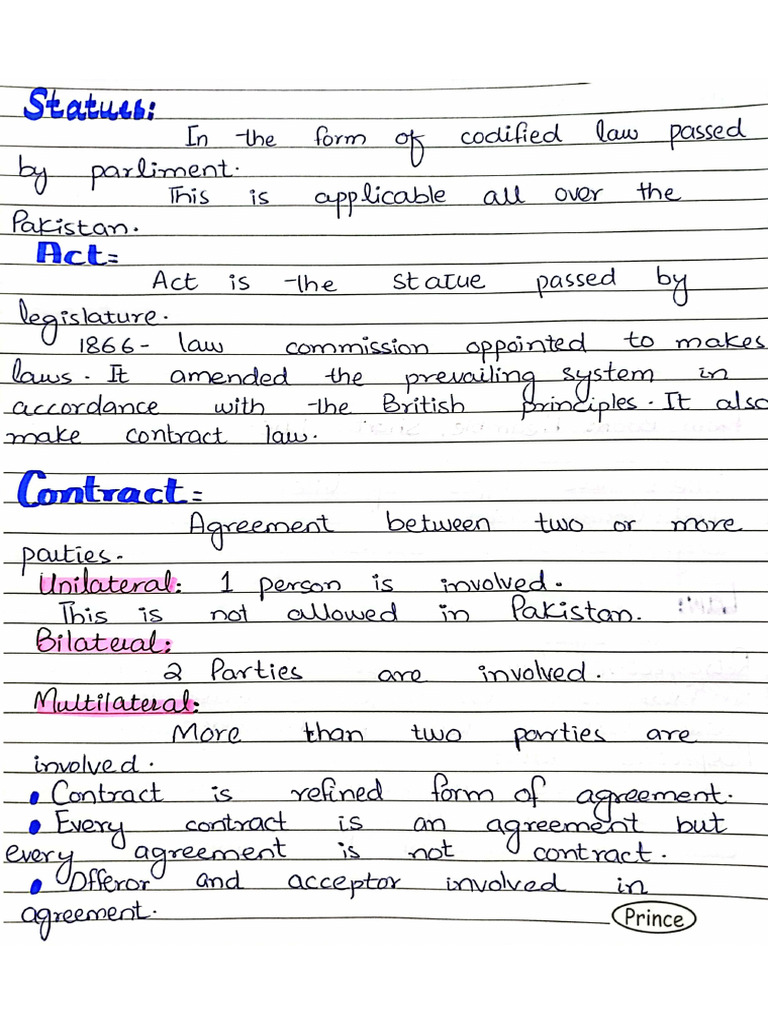 Statues:
In the form of codified law passed
by parliment.
This is applicable all over the
Pakistan.
Act=
Act is the statue passed by
legislature.
1866- law commission appointed to makes
laws. It amended the prevailing system in
accordance with the British principles. It also
make contract law.
Contract=
Agreement between two or more
parties.
Unilateral: 1 person is involved.
This is not allowed in Pakistan.
Bilateral:
2 Parties are involved.
Multilateral:
More than two parties are
involved.
• Contract is refined form of agreement.
• Every contract is an agreement but
every agreement is not contract.
• Offeror and acceptor involved in
agreement.
Prince